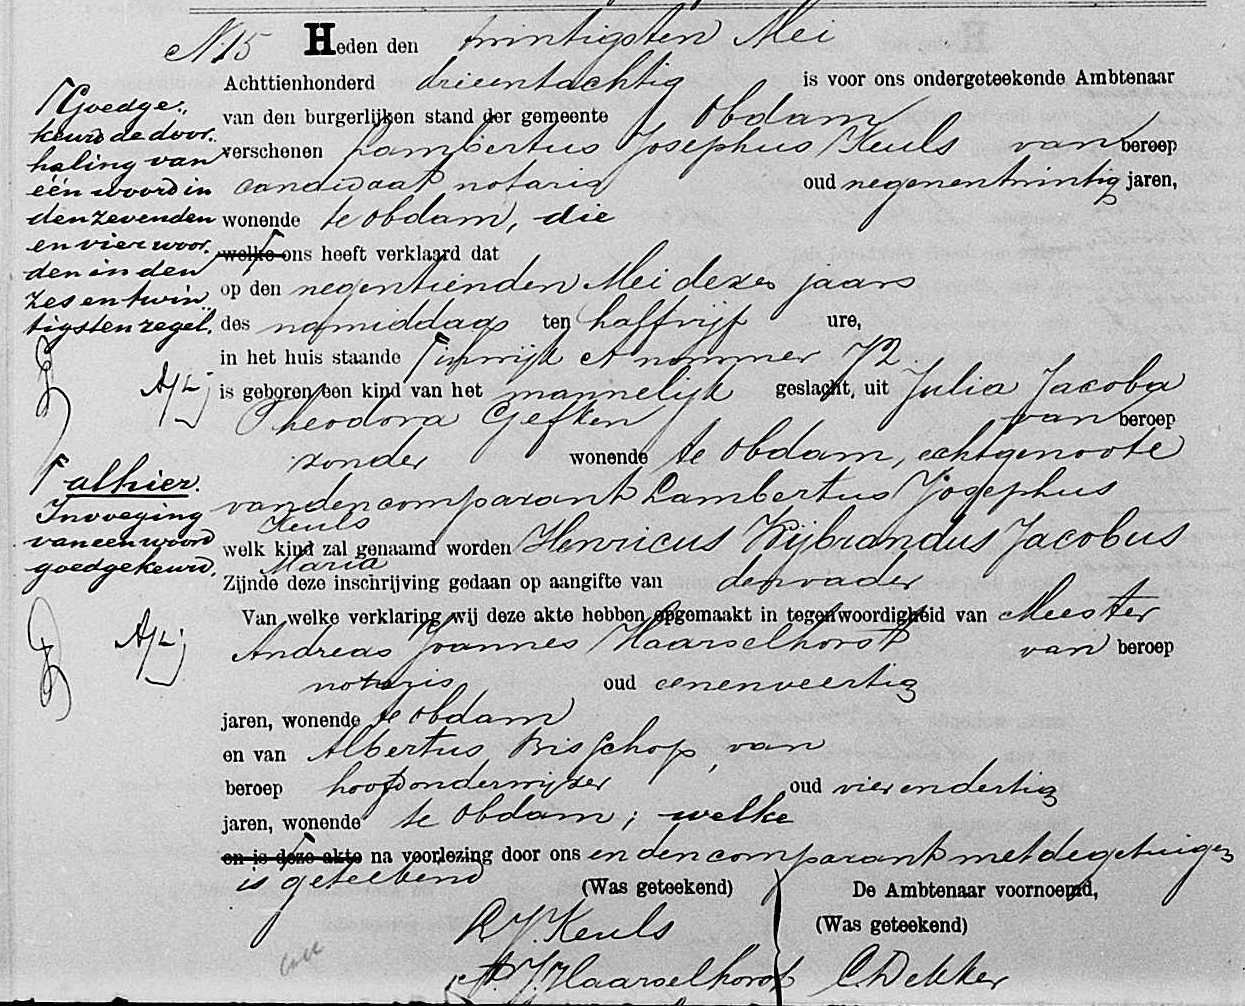 No. 15 Heden den twintigsten Mei
Achttienhonderd drieentachtig is voor ons ondergeteekende Ambtenaar
van den burgerlijken stand der gemeente Obdam
verschenen Lambertus Josephus Keuls van beroep
candidaat notaris oud negenentwintig jaren,
wonende te Obdam, die
welke ons heeft verklaard dat
op den negentienden Mei dezes jaars
des namiddags ten halfvijf ure,
in het huis staande wijk A nommer 72.
is geboren een kind van het mannelijk geslacht, uit Julia Jacoba
Theodora Gefken van beroep
zonder wonende te Obdam, echtgenoote
van den comparant Lambertus Josephus
Keuls
welk kind zal genaamd worden Henricus Wijbrandus Jacobus
Maria
Zijnde deze inschrijving gedaan op aangifte van den vader
Van welke verklaring wij deze akte hebben opgemaakt in tegenwoordigheid van Meester
Andreas Joannes Haarselhorst van beroep
notaris oud eenenveertig
jaren, wonende te Obdam
en van Albertus Bisschop, van
beroep hoofdonderwijzer oud vierendertig
jaren, wonende te Obdam; welke
en is deze akte na voorlezing door ons en den comparant met de getuigen
is geteekend
(Was geteekend) De Ambtenaar voornoemd,
(Was geteekend)
L J. Keuls
A. J. Haarselhorst C. Dekker
Goedge
keurd de door
haling van
één woord in
den zevenden
en vier woor
den in den
zes en twin
tigsten regel.
alhier.
Invoeging
van een woord
goedgekeurd.